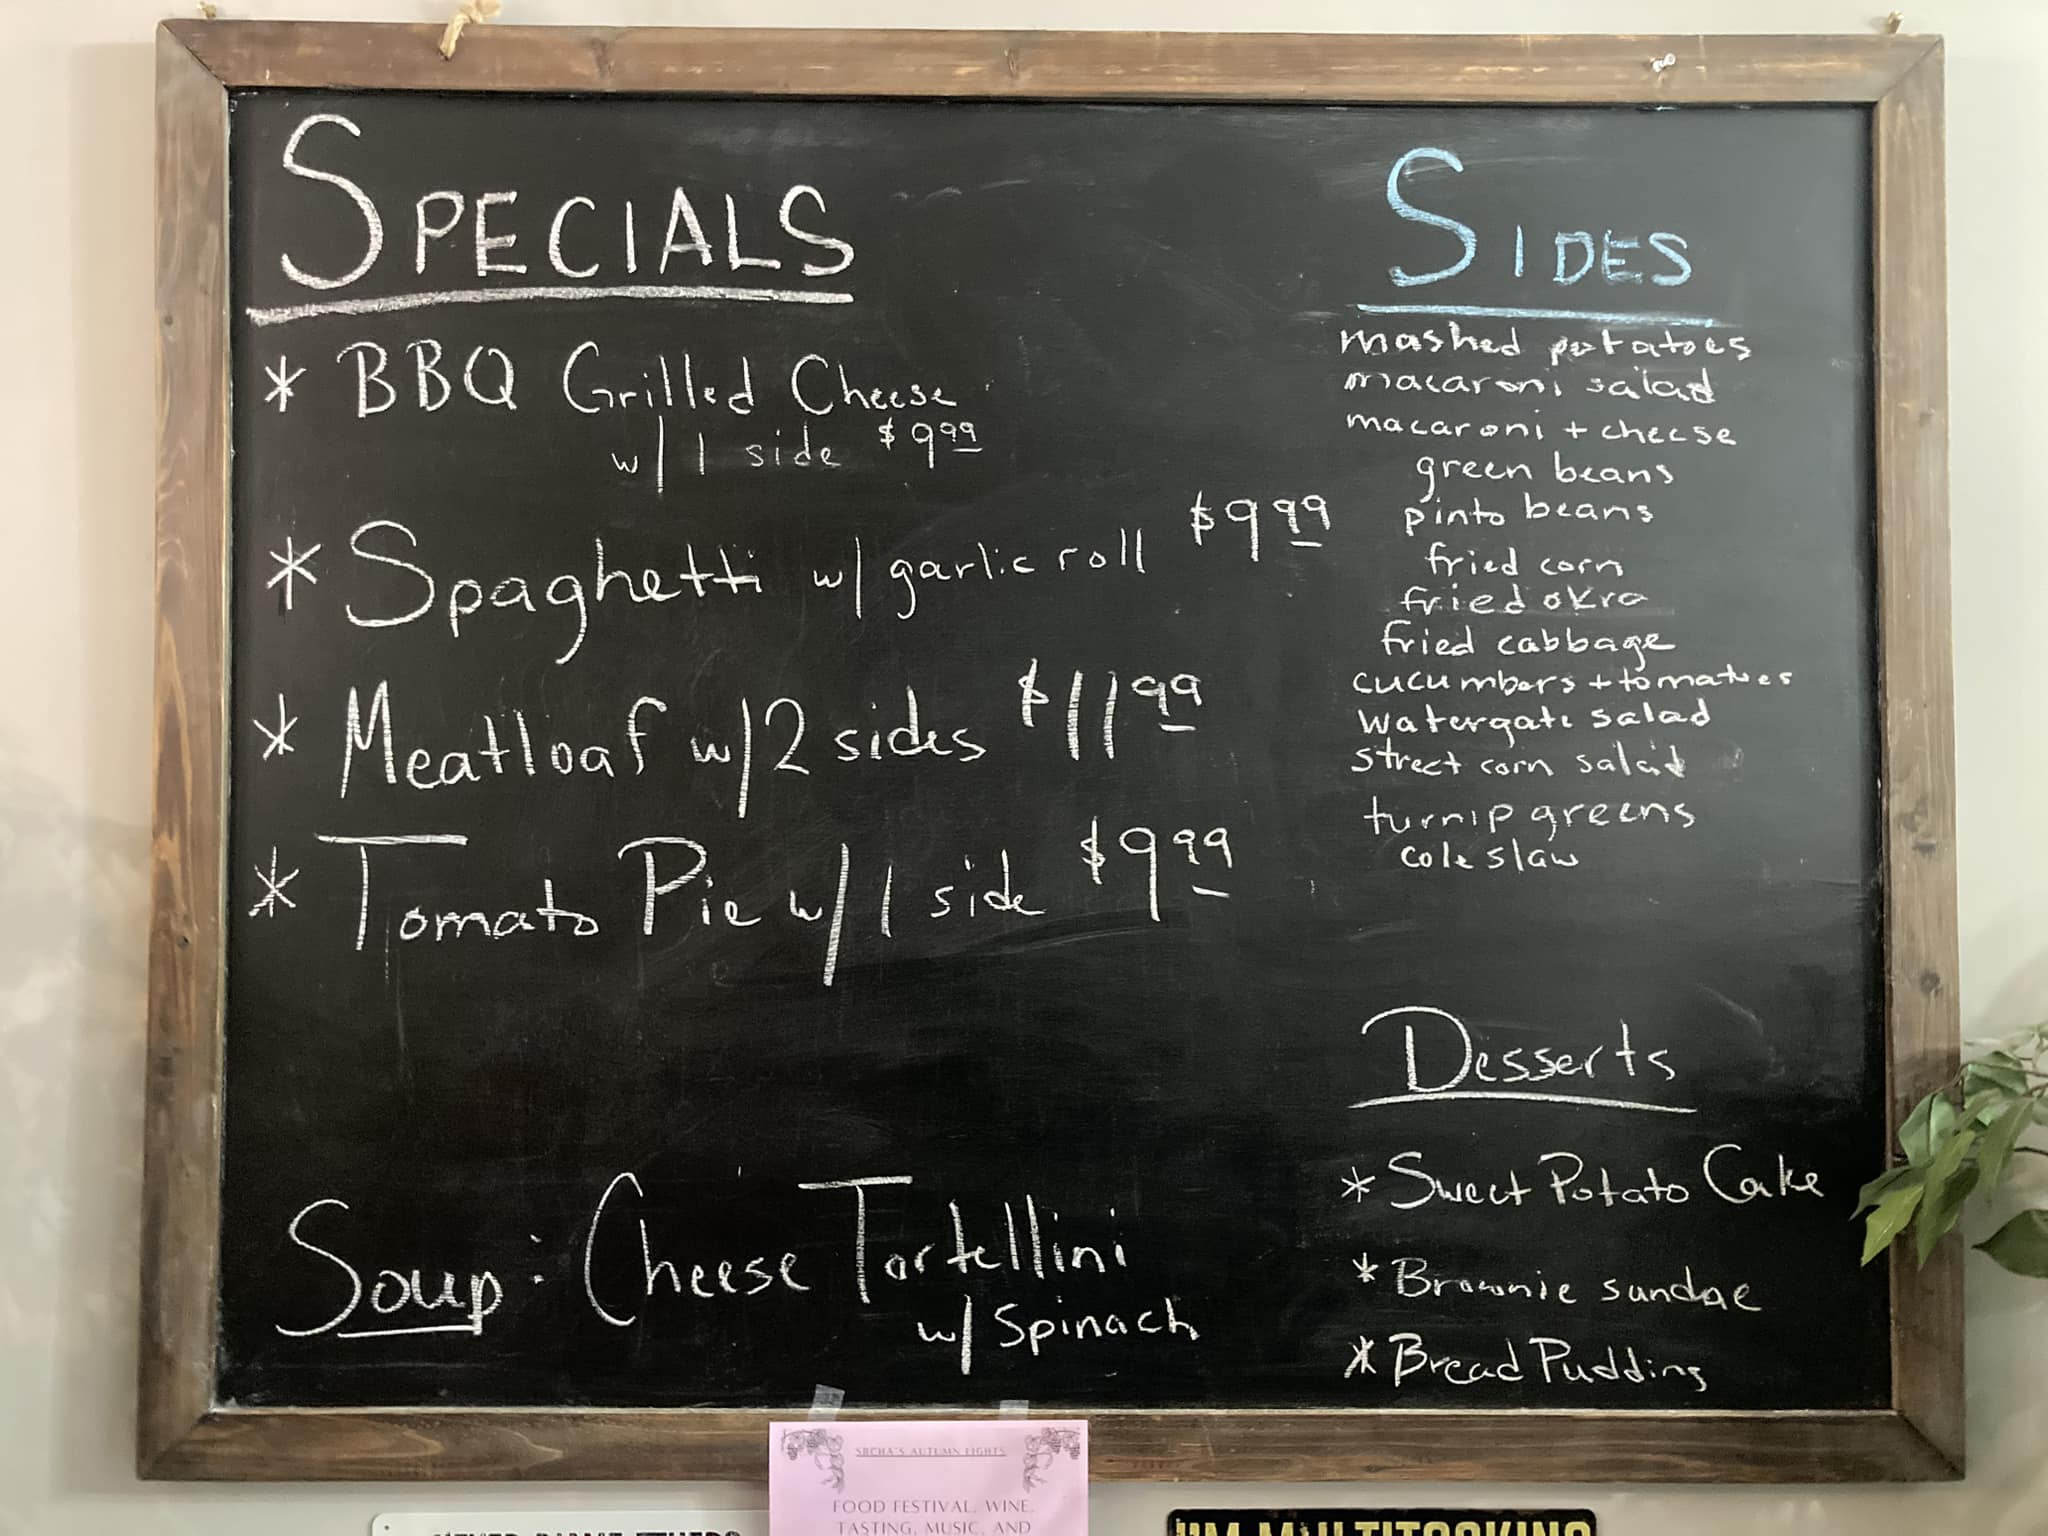 SPECIALS
* BBQ Grilled Cheese
w/ 1 side $9.99
* Spaghetti w/ garlic roll $9.99
* Meatloaf w/ 2 sides $11.99
* Tomato Pie w/ 1 side $9.99
Soup: Cheese Tortellini
w/ Spinach
SIDES
mashed potatoes
macaroni salad
macaroni + cheese
green beans
pinto beans
fried corn
fried okra
fried cabbage
cucumbers + tomatoes
watergate salad
street corn salad
turnip greens
cole slaw
Desserts
* Sweet Potato Cake
* Brownie sundae
* Bread Pudding
SBCHA'S AUTUMN
FOOD FESTIVAL, WINE,
TASTING, MUSIC, AND
I'M MULTITASKING